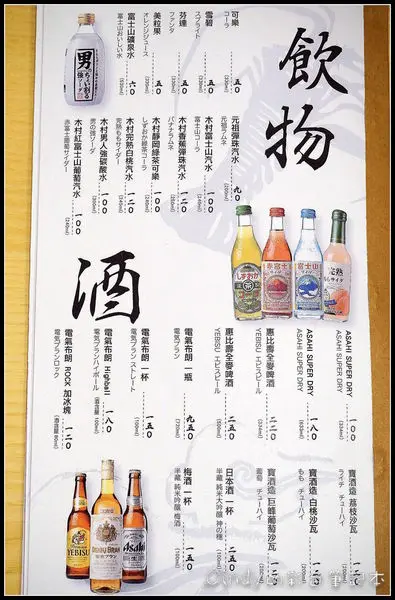 飲物
可樂
コーラ
五0
(330ml)
雪碧
スプライト
五0
(330ml)
芬達
ファンタ
五0
(330ml)
美粒果
オレンジジュース
五0
富士山礦泉水
富士山おいしい水
六0
(530ml)
元祖彈珠汽水
元祖ラムネ
九0
(200ml)
木村富士山汽水
富士山コーラ
一00
(240ml)
木村香蕉彈珠汽水
バナナラムネ
一二0
木村靜岡綠茶可樂
しずおか緑茶コーラ
一00
(240ml)
木村完熟白桃汽水
完熟ももサイダー
一二0
(240ml)
木村男人強碳酸水
男の強ソーダ
一00
木村紅富士山葡萄汽水
赤富士葡萄サイダー
一00
(240ml)
男
しずおか
茶
赤富士
富士山
完熟
酒
ASAHI SUPER DRY
ASAHI SUPER DRY
一00
(334ml)
ASAHI SUPER DRY
ASAHI SUPER DRY
一八0
(633ml)
惠比壽全麥啤酒
YEBISU エビスビール
一三0
(334ml)
惠比壽全麥啤酒
YEBISU エビスビール
二五0
(500ml)
電氣布朗 一瓶
電気ブラン
九五0
(720ml)
電氣布朗 一杯
電気ブラン ストレート
一五0
(100ml)
電氣布朗 Highball
電気ブランハイボール
一八0
電氣布朗 ROCK 加冰塊
電気ブランロック
一二0
寶酒造 荔枝沙瓦
ライチ チューハイ
寶酒造 白桃沙瓦
もも チューハイ
寶酒造 巨峰葡萄沙瓦
葡萄 チューハイ
日本酒 一杯
半藏 純米大吟釀 神の穗
二五0
(100ml)
梅酒 一杯
半藏 純米吟釀 梅酒
一五0
YEBISU
DENKI BRAN
Asahi